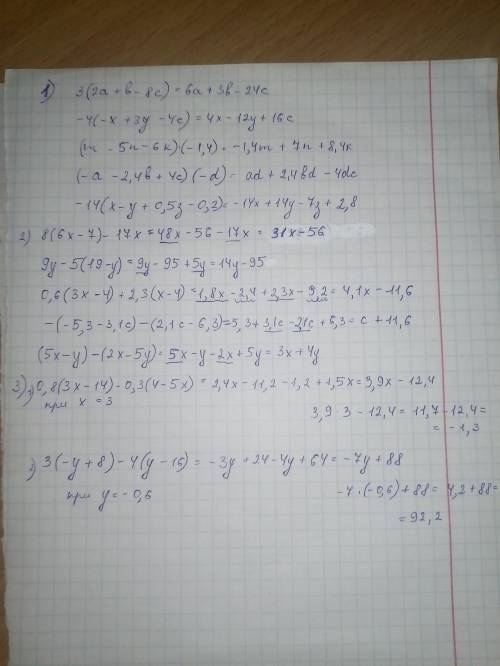 1) 3(2a + b - 8c) = 6a + 3b - 24c
-4(-x + 3y - 4c) = 4x - 12y + 16c
(m - 5n - 6k)·(-1,4) = -1,4m + 7n + 8,4k
(-a - 2,4b + 4c)(-d) = ad + 2,4bd - 4dc
-14(x - y + 0,5z - 0,2) = -14x + 14y - 7z + 2,8
2) 8(6x - 7) - 17x = 48x - 56 - 17x = 31x - 56
9y - 5(19 - y) = 9y - 95 + 5y = 14y - 95
0,6(3x - 4) + 2,3(x - 4) = 1,8x - 2,4 + 2,3x - 9,2 = 4,1x - 11,6
-(-5,3 - 3,1c) - (2,1c - 6,3) = 5,3 + 3,1c - 2,1c + 6,3 = c + 11,6
(5x - y) - (2x - 5y) = 5x - y - 2x + 5y = 3x + 4y
3) 1) 0,8(3x - 14) - 0,3(4 - 5x) = 2,4x - 11,2 - 1,2 + 1,5x = 3,9x - 12,4
при x = 3
3,9·3 - 12,4 = 11,7 - 12,4 =
= -1,3
2) 3(-y + 8) - 4(y - 16) = -3y + 24 - 4y + 64 = -7y + 88
при y = -0,6
-7·(-0,6) + 88 = 4,2 + 88 =
= 92,2